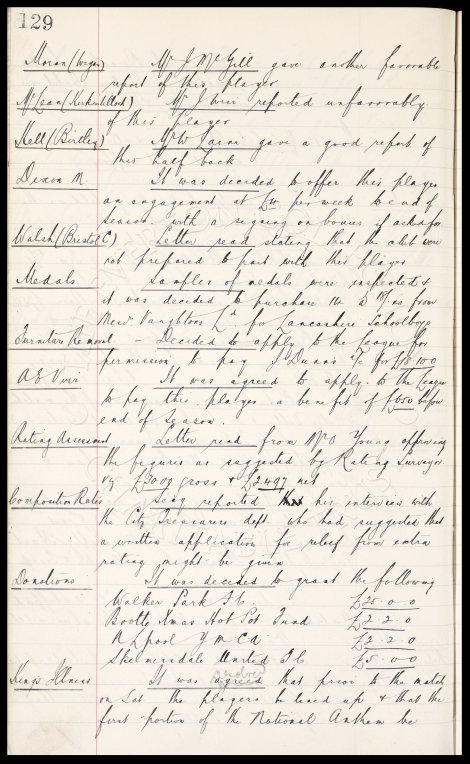 129
Moran (Wigan) Mr J McGill gave another favorable
report of this player
McLean (Kirkintilloch) Mr J Weir reported unfavorably
of this player
Kell (Birtley) Mr W gave a good report of
this half back
Dixon M It was decided to offer this player
an engagement at £4 per week to end of
season. with a signing on bonus if asked for
Walsh (Bristol C) Letter read stating that the club were
not prepared to part with this player
Medals Samples of medals were inspected &
it was decided to purchase 14 @ from
Messrs Vaughtons Ld for Lancashire Schoolboys
Furniture Removal - Decided to apply to the League for
permission to pay J Dunn's a/c for £18.10.0
It was agreed to apply to the League
to pay this player a benefit of £650 before
end of Season.
Rating Assessment Letter read from Young approving
the figures as suggested by Rating Surveyor
viz £3000 gross & £2497 net
Composition Rates Secy reported his interview with
the City Treasurers dept. who had suggested that
a written application for relief from extra
rating might be given
Donations It was decided to grant the following
Walker Park Fb. £25.0.0
Bootle Xmas Hot Pot Fund £2.2.0
N Lpool Y M C A £2.2.0
Skelmersdale United Fb £5.0.0
Kings Illness It was agreed that prior to the match
on Sat. the players be lined up & that the
first portion of the National Anthem be